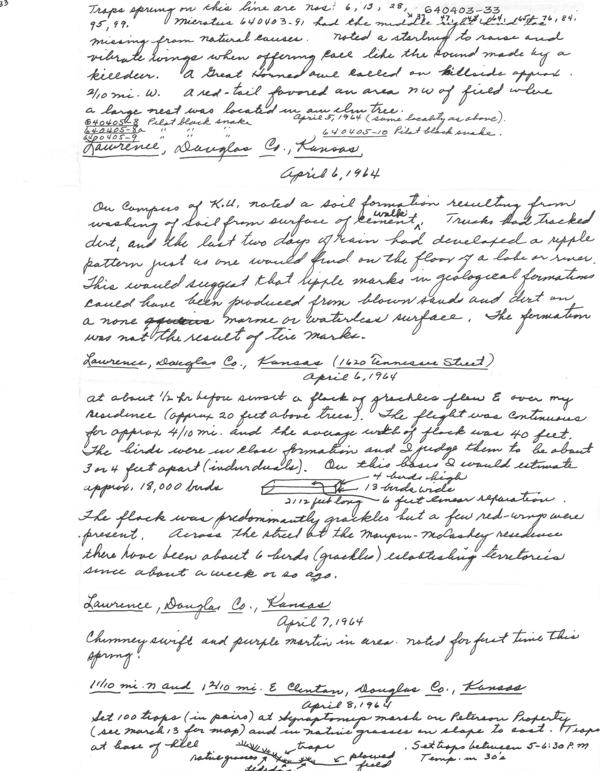 33
Traps sprung on this line are nos. 6, 13, 28,
640403-33
95, 99. Microtus 640403-91 had the middle
missing from natural causes. Noted a starling to raise and
vibrate wings when offering call like the sound made by a
killdeur. A Great Horned owl called on hillside approx.
2/10 mi. W. A red-tail favored an area NW of field where
a large nest was located in an elm tree.
640405-8 Pilot black snake April 5, 1964 (same locality as above).
640405-8a " " "
640405-9 " " " 640405-10 Pilot black snake.
Lawrence, Douglas Co., Kansas
April 6, 1964
On Campus of K.U. noted a soil formation resulting from
washing of soil from surface of cement walk. Trucks had tracked
dirt, and the last two days of rain had developed a ripple
pattern just as one would find on the floor of a lake or river.
This would suggest that ripple marks in geological formations
could have been produced from blown sands and dirt on
a none marine or waterless surface. The formation
was not the result of tire marks.
Lawrence, Douglas Co., Kansas (1620 Tennessee Street)
April 6, 1964
at about 1/2 hr before sunset a flock of grackles flew E over my
residence (approx 20 feet above trees). The flight was continuous
for approx 4/10 mi. and the average width of flock was 40 feet.
The birds were in close formation and I judge them to be about
3 or 4 feet apart (individuals). On this basis I would estimate
approx. 18,000 birds
4 birds high
13 birds wide
2112 feet long 6 feet linear separation.
The flock was predominantly grackles but a few red-wings were
present. Across the street at the residence
there have been about 6 birds (grackles) establishing territories
since about a week or so ago.
Lawrence, Douglas Co., Kansas
April 7, 1964
Chimney swift and purple martin in area noted for first time this
spring.
11/10 mi. N and 12/10 mi. E Clinton, Douglas Co., Kansas
April 8, 1964
Set 100 traps (in pairs) at Synaptomys marsh on Peterson Property
(see March 13 for map) and in native grasses on slope to east. Traps
at base of hill
native grasses
traps
plowed
field
Set traps between 5-6:30 P.M
Temp. in 30's